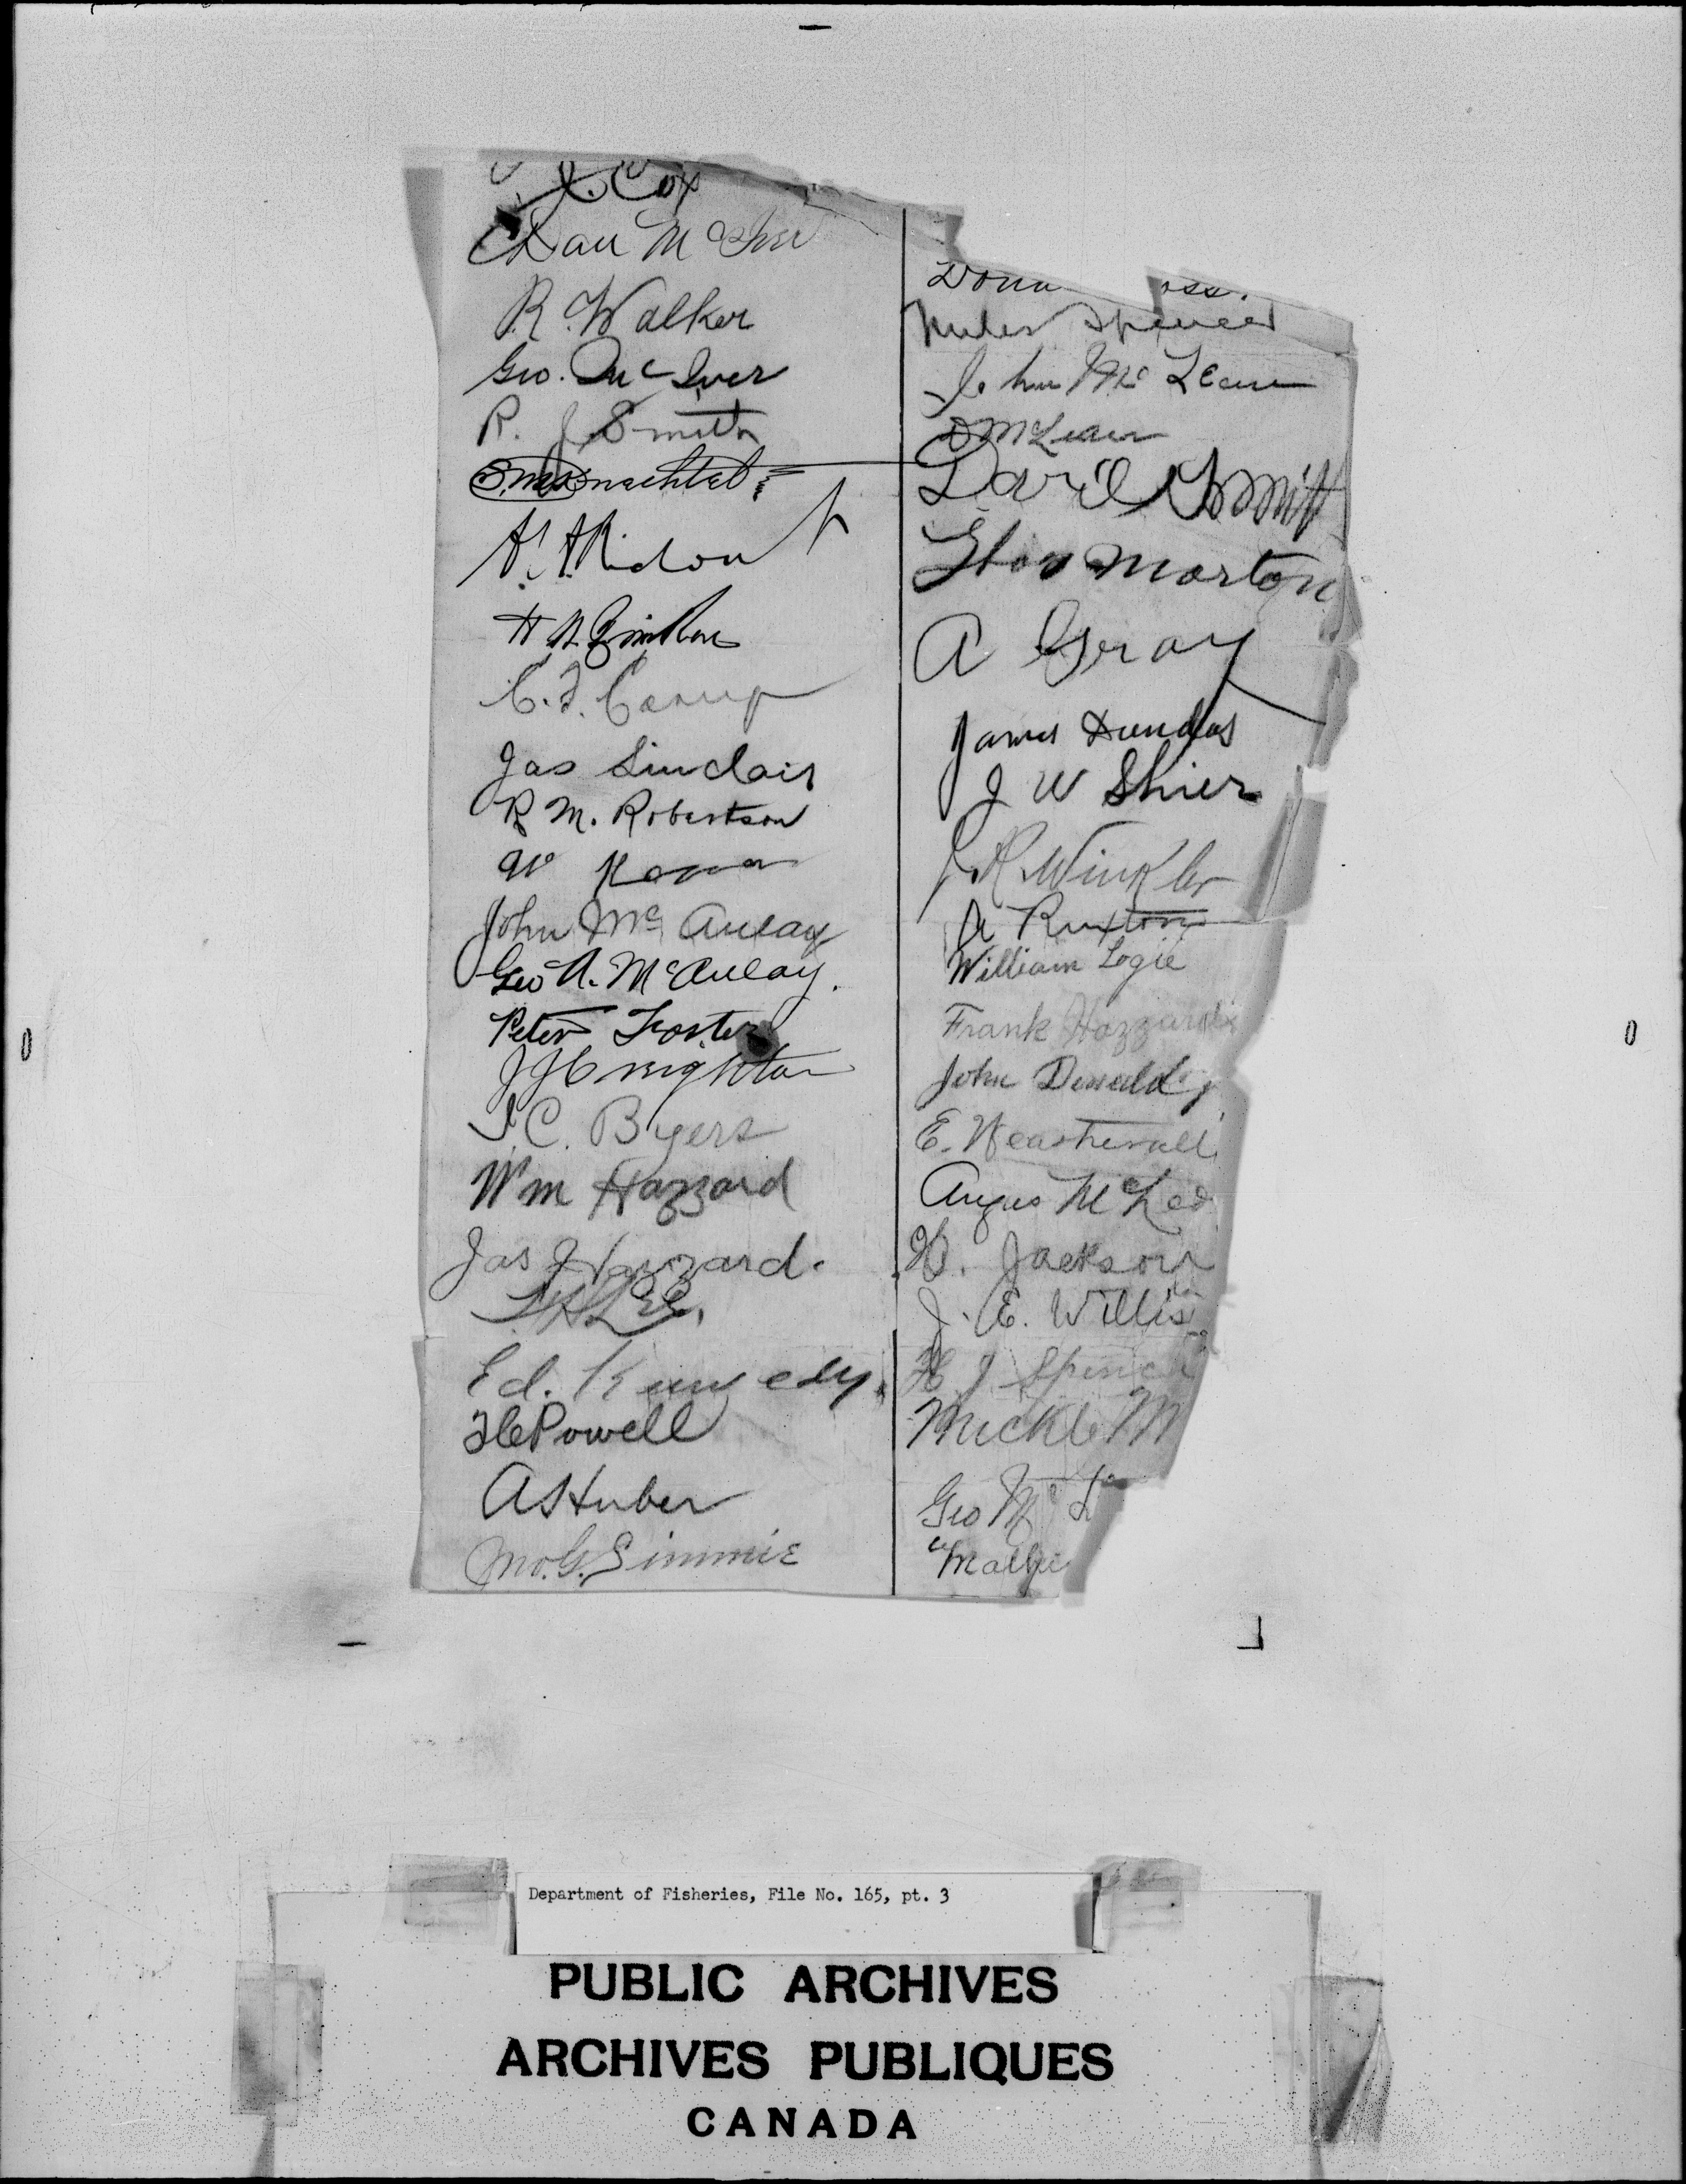 Cox
Dan McIver
R. Walker
Geo. McIver
R. J Smith
H. A. Ridout
C. F. Camp
Jas Sinclair
R M. Robertson
W
John Mc Aulay
Geo A. McAulay.
Peter Foster
J J Creighton
J. C. Byers
Wm Hazzard
Jas Hazzard.
Ed. Kennedy.
Powell
A S Huber
Jno. G. Simmie
Dona oss.
Miles Spencer
John Mc Lean
D McLean
David Smith
Morton
A Gray
James Dundas
J W Shier
J. R. Winkler
A Ruxton
William Logie
Frank Hazzard
John Donald
E. Weatherall
Angus McLeo
Jackson
J. E. Willis
H J Spenc
Mickle M
Geo Mc L
Department of Fisheries, File No. 165, pt. 3
PUBLIC ARCHIVES
ARCHIVES PUBLIQUES
CANADA